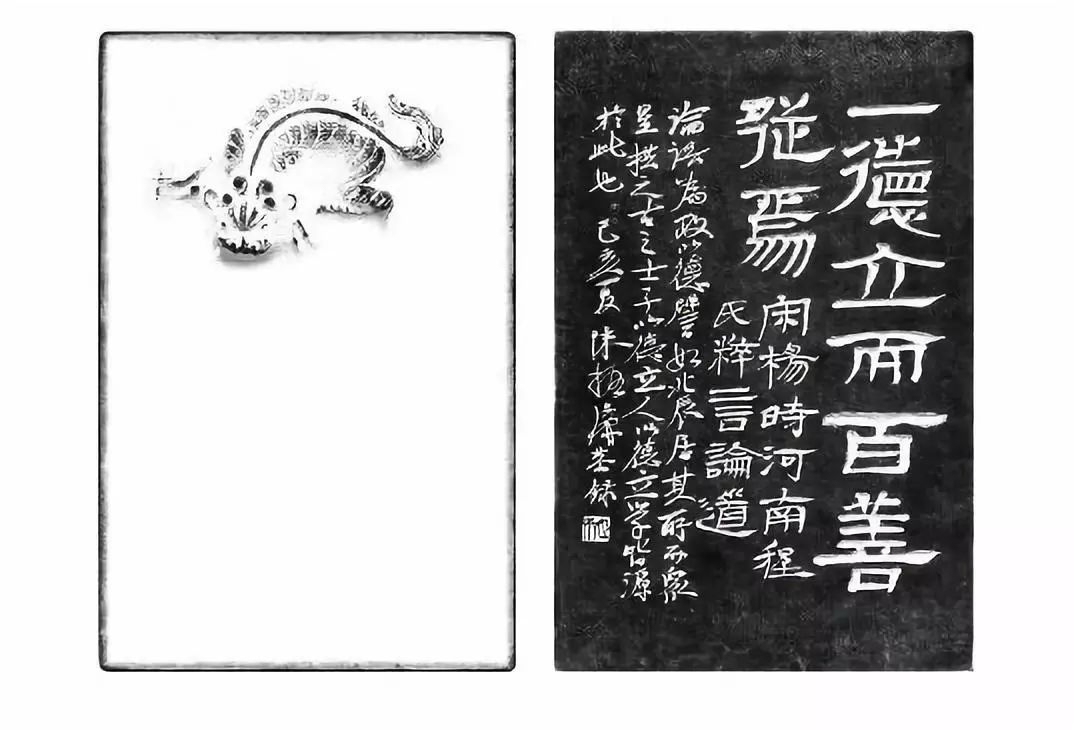 一德立而百善
從焉
宋楊時河南程
氏粹言論道
論語為政以德譬如北辰居其所而眾
星拱之古之士子以德立人以德立學皆源
於此也 己亥夏 陳振濂恭録